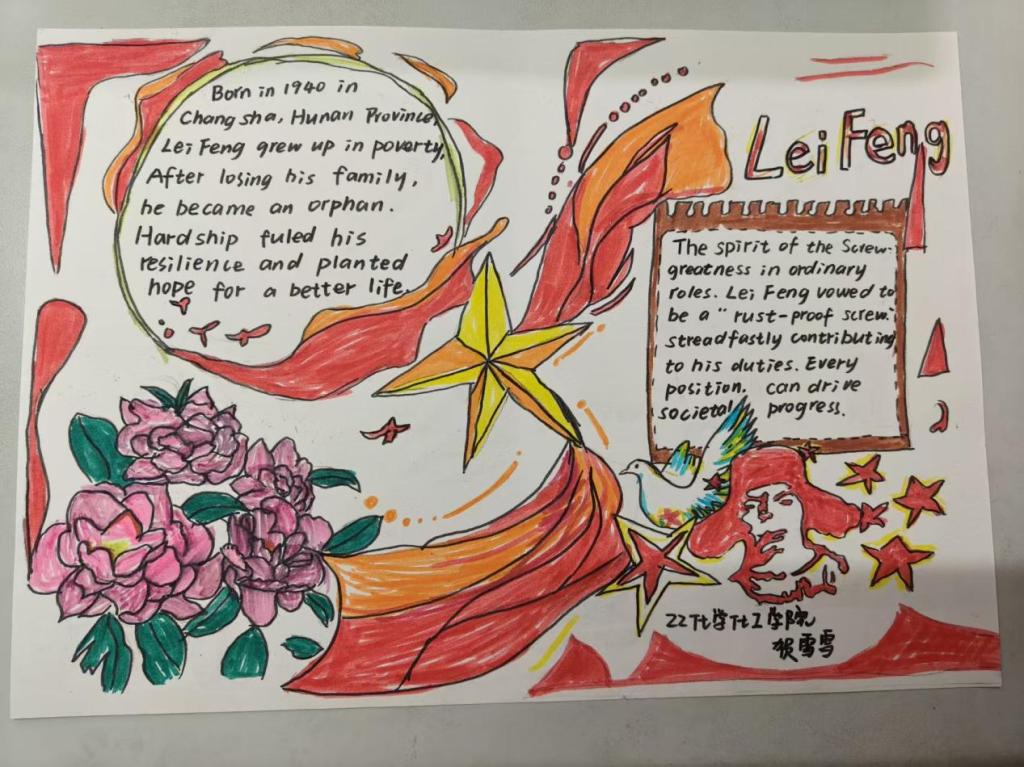 Born in 1940 in
Changsha, Hunan Province,
Lei Feng grew up in poverty,
After losing his family,
he became an orphan.
Hardship fuled his
resilience and planted
hope for a better life.
Lei Feng
The spirit of the Screw:
greatness in ordinary
roles. Lei Feng vowed to
be a "rust-proof screw."
streadfastly contributing
to his duties. Every
position. can drive
societal progress.
22化学化工学院
贺雪雪